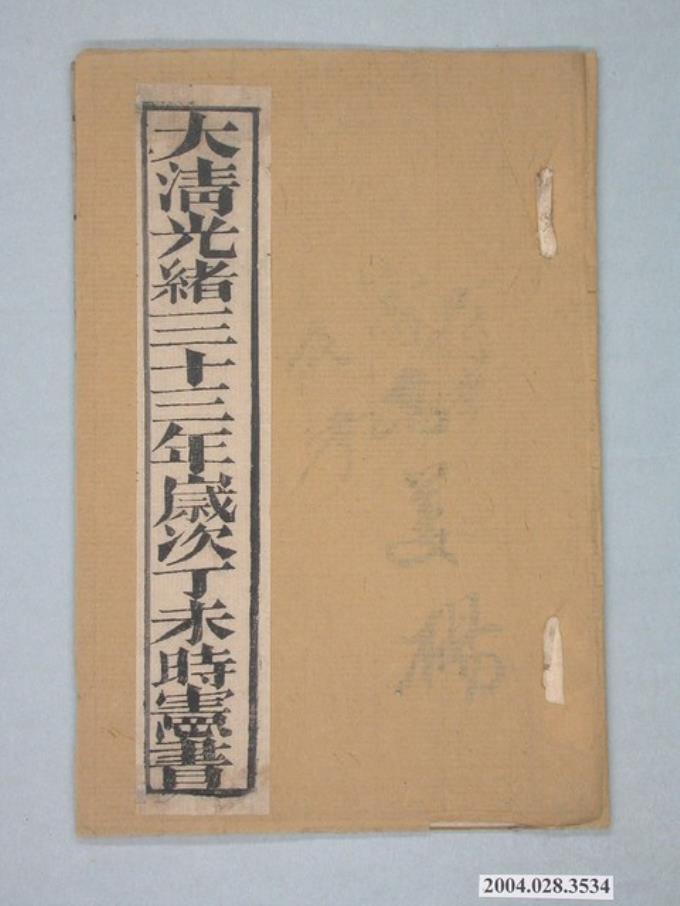 大清光緒三十三年歲次丁未時憲書
2004.028.3534